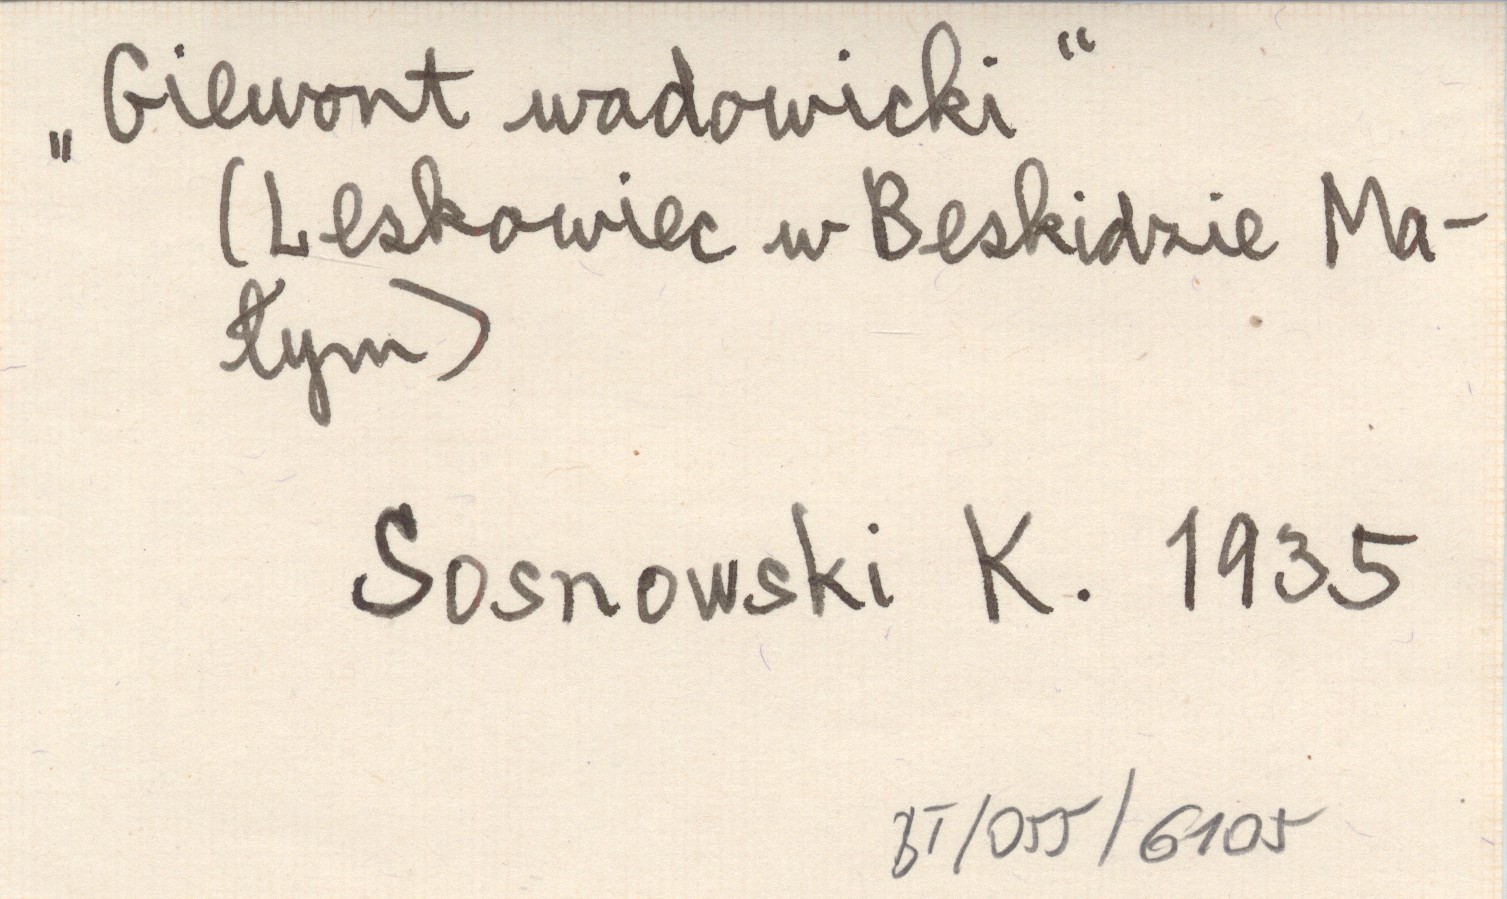 „Giewont wadowicki“
(Leskowiec w Beskidzie Ma-
łym)
Sosnowski K. 1935
BT/055/6105